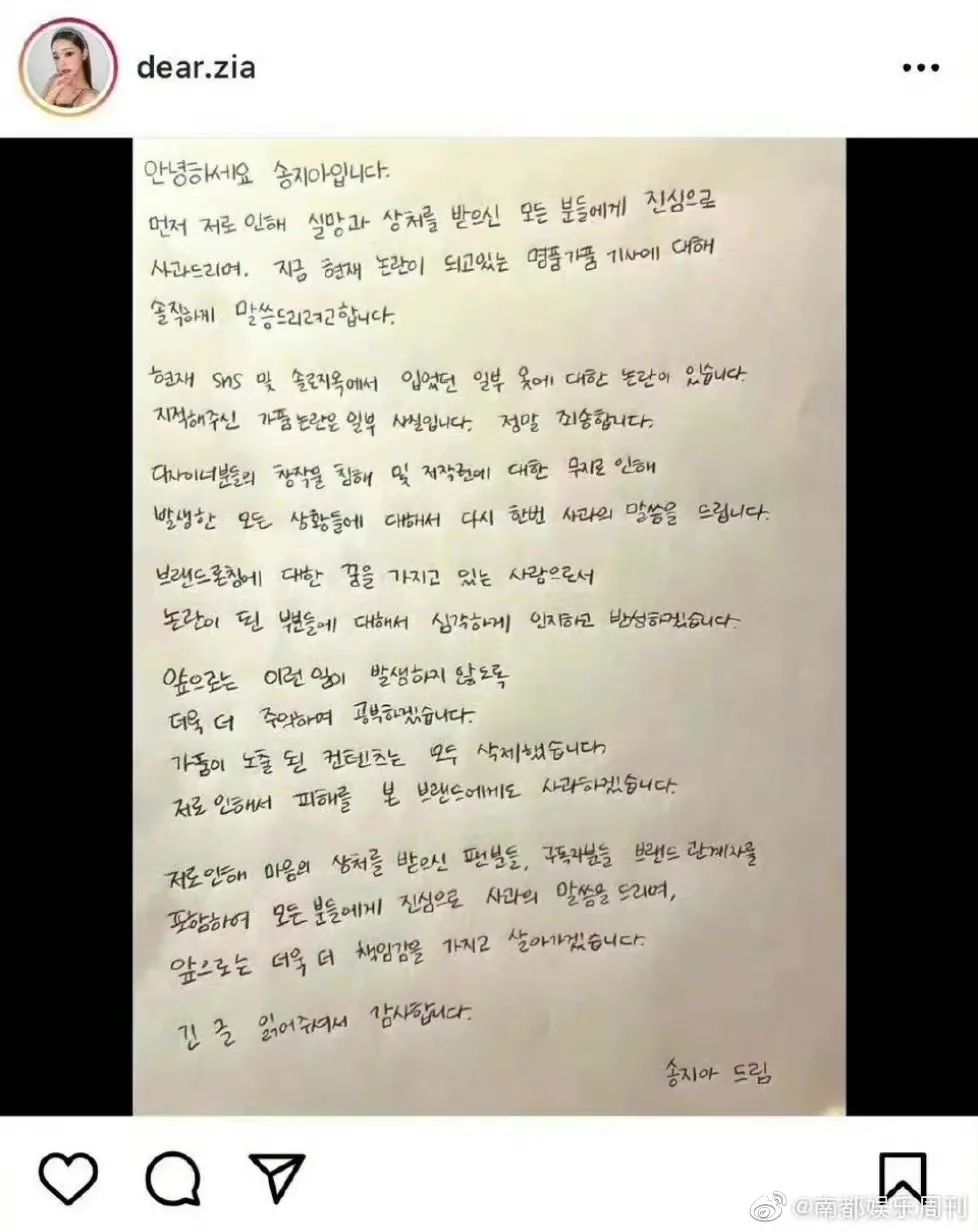 dear.zia
안녕하세요 송지아입니다.
먼저 저로 인해 실망과 상처를 받으신 모든 분들에게 진심으로
사과드리며. 지금 현재 논란이 되고있는 명품가품 기사에 대해
솔직하게 말씀드리려고합니다.
현재 SNS 및 솔로지옥에서 입었던 일부 옷에 대한 논란이 있습니다.
지적해주신 가품논란은 일부 사실입니다. 정말 죄송합니다.
디자이너분들의 창작물 침해 및 저작권에 대한 무지로 인해
발생한 모든 상황들에 대해서 다시 한번 사과의 말씀을 드립니다.
브랜드론칭에 대한 꿈을 가지고 있는 사람으로서
논란이 된 부분들에 대해서 심각하게 인지하고 반성하겠습니다.
앞으로는 이런 일이 발생하지 않도록
더욱 더 주의하며 공부하겠습니다.
가품이 노출 된 컨텐츠는 모두 삭제했습니다.
저로 인해서 피해를 본 브랜드에게도 사과하겠습니다.
저로인해 마음의 상처를 받으신 팬분들, 구독자분들 브랜드 관계자를
포함하여 모든 분들에게 진심으로 사과의 말씀을 드리며,
앞으로는 더욱 더 책임감을 가지고 살아가겠습니다.
긴 글 읽어주셔서 감사합니다.
송지아 드림
@南都娱乐周刊